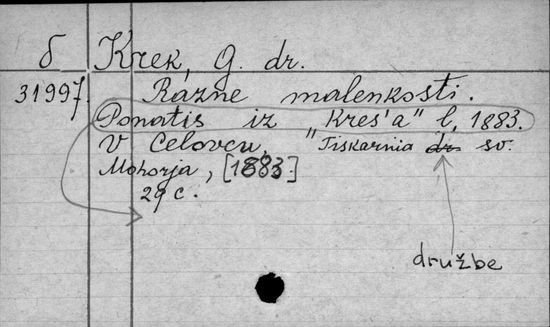 δ Krek, G. dr.
31997. Razne malenkosti.
Ponatis iz "Kres'a" l. 1883.
V Celovcu, "Tiskarnia dr. sv.
Mohorja, [1883.]
29 c.
družbe